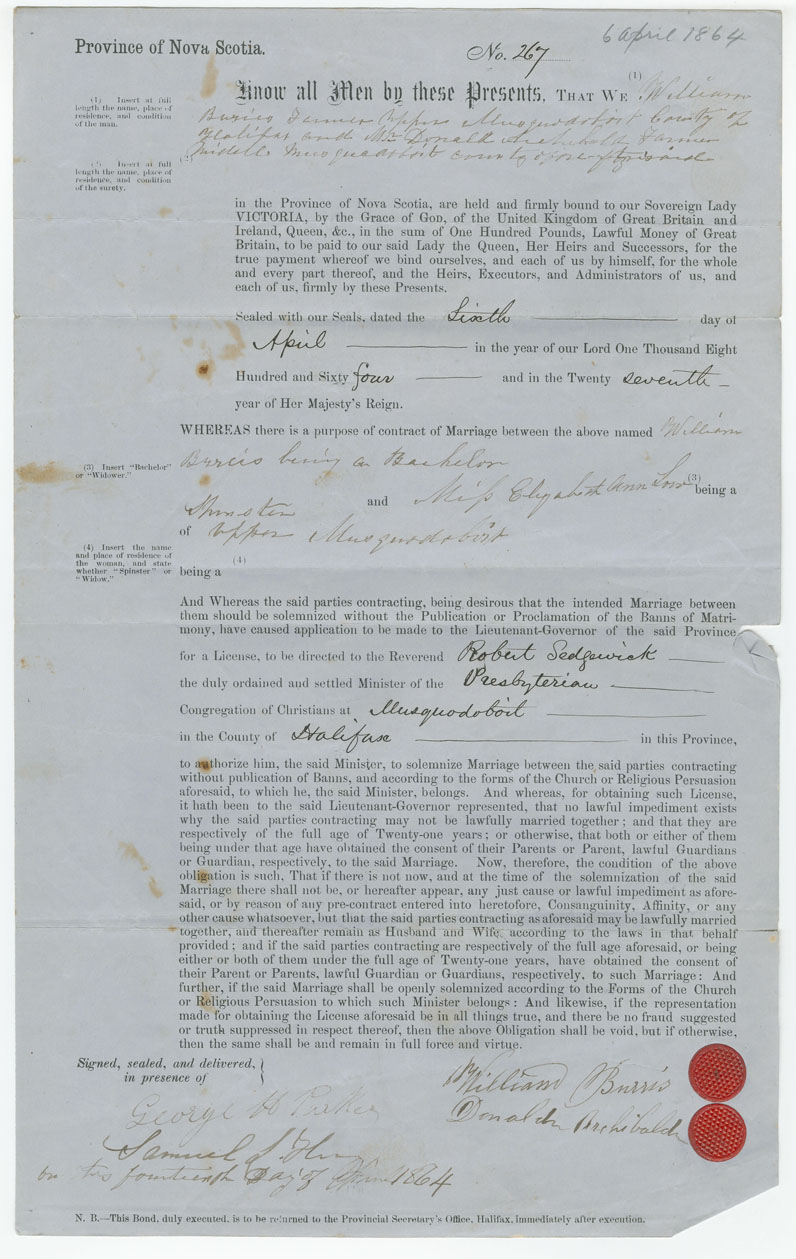 6 April 1864
Province of Nova Scotia.
No. 267
Know all Men by these Presents, THAT WE (1) William
Burris Farmer Upper Musquodoboit County of
Halifax and Mr Donald Archibald Farmer
Middle Musquodoboit county aforesaid
(1) Insert at full
length the name, place of
residence, and condition
of the man.
(2) Insert at full
length the name, place of
residence, and condition
of the surety.
(2)
in the Province of Nova Scotia, are held and firmly bound to our Sovereign Lady
VICTORIA, by the Grace of GOD, of the United Kingdom of Great Britain and
Ireland, Queen, &c., in the sum of One Hundred Pounds, Lawful Money of Great
Britain, to be paid to our said Lady the Queen, Her Heirs and Successors, for the
true payment whereof we bind ourselves, and each of us by himself, for the whole
and every part thereof, and the Heirs, Executors, and Administrators of us, and
each of us, firmly by these Presents.
Sealed with our Seals, dated the Sixth day of
April in the year of our Lord One Thousand Eight
Hundred and Sixty four and in the Twenty seventh
year of Her Majesty's Reign.
WHEREAS there is a purpose of contract of Marriage between the above named William
Burris being a Bachelor
(3) Insert "Bachelor"
or "Widower."
and Miss Elizabeth Ann Low (3) being a
Spinster
of Upper Musquodoboit
(4) Insert the name
and place of residence of
the woman, and state
whether "Spinster" or
"Widow."
being a (4)
And Whereas the said parties contracting, being desirous that the intended Marriage between
them should be solemnized without the Publication or Proclamation of the Banns of Matri-
mony, have caused application to be made to the Lieutenant-Governor of the said Province
for a License, to be directed to the Reverend Robert Sedgewick
the duly ordained and settled Minister of the Presbyterian
Congregation of Christians at Musquodoboit
in the County of Halifax in this Province,
to authorize him, the said Minister, to solemnize Marriage between the said parties contracting
without publication of Banns, and according to the forms of the Church or Religious Persuasion
aforesaid, to which he, the said Minister, belongs. And whereas, for obtaining such License,
it hath been to the said Lieutenant-Governor represented, that no lawful impediment exists
why the said parties contracting may not be lawfully married together; and that they are
respectively of the full age of Twenty-one years; or otherwise, that both or either of them
being under that age have obtained the consent of their Parents or Parent, lawful Guardians
or Guardian, respectively, to the said Marriage. Now, therefore, the condition of the above
obligation is such, That if there is not now, and at the time of the solemnization of the said
Marriage there shall not be, or hereafter appear, any just cause or lawful impediment as afore-
said, or by reason of any pre-contract entered into heretofore, Consanguinity, Affinity, or any
other cause whatsoever, but that the said parties contracting as aforesaid may be lawfully married
together, and thereafter remain as Husband and Wife, according to the laws in that behalf
provided; and if the said parties contracting are respectively of the full age aforesaid, or being
either or both of them under the full age of Twenty-one years, have obtained the consent of
their Parent or Parents, lawful Guardian or Guardians, respectively, to such Marriage: And
further, if the said Marriage shall be openly solemnized according to the Forms of the Church
or Religious Persuasion to which such Minister belongs: And likewise, if the representation
made for obtaining the License aforesaid be in all things true, and there be no fraud suggested
or truth suppressed in respect thereof, then the above Obligation shall be void, but if otherwise,
then the same shall be and remain in full force and virtue.
Signed, sealed, and delivered,
in presence of
William Burris
Donald Archibald
George H Parker
Samuel
on this fourteenth Day of 1864
N. B.—This Bond, duly executed, is to be returned to the Provincial Secretary's Office, Halifax, immediately after execution.